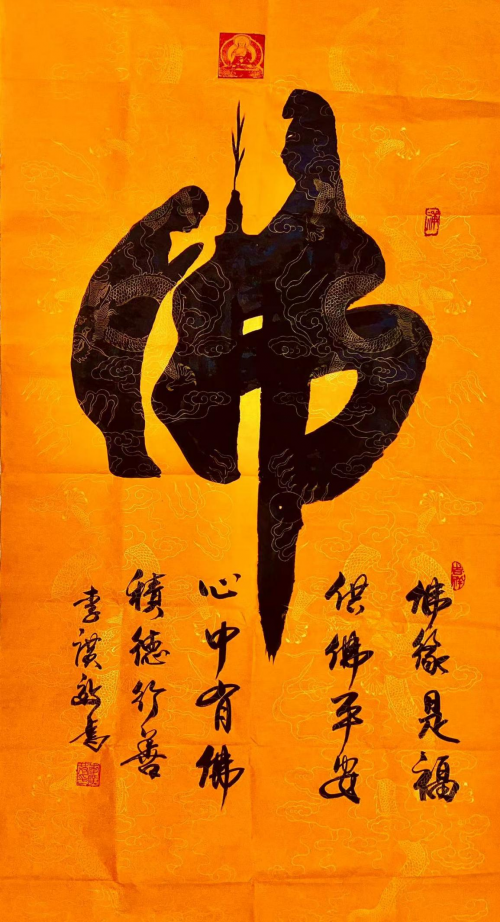 佛
佛缘是福
供佛平安
心中有佛
積德行善
李
書
吉祥